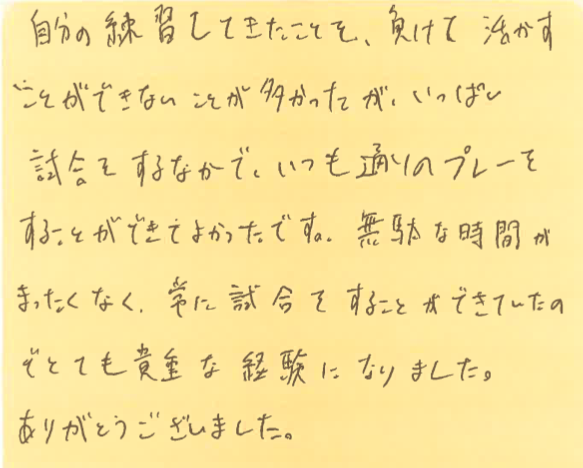 自分の練習してきたことを、負けて活かす
ことができないことが多かったが、いっぱい
試合をするなかで、いつも通りのプレーを
することができてよかったです。無駄な時間が
まったくなく、常に試合をすることができていたの
でとても貴重な経験になりました。
ありがとうございました。